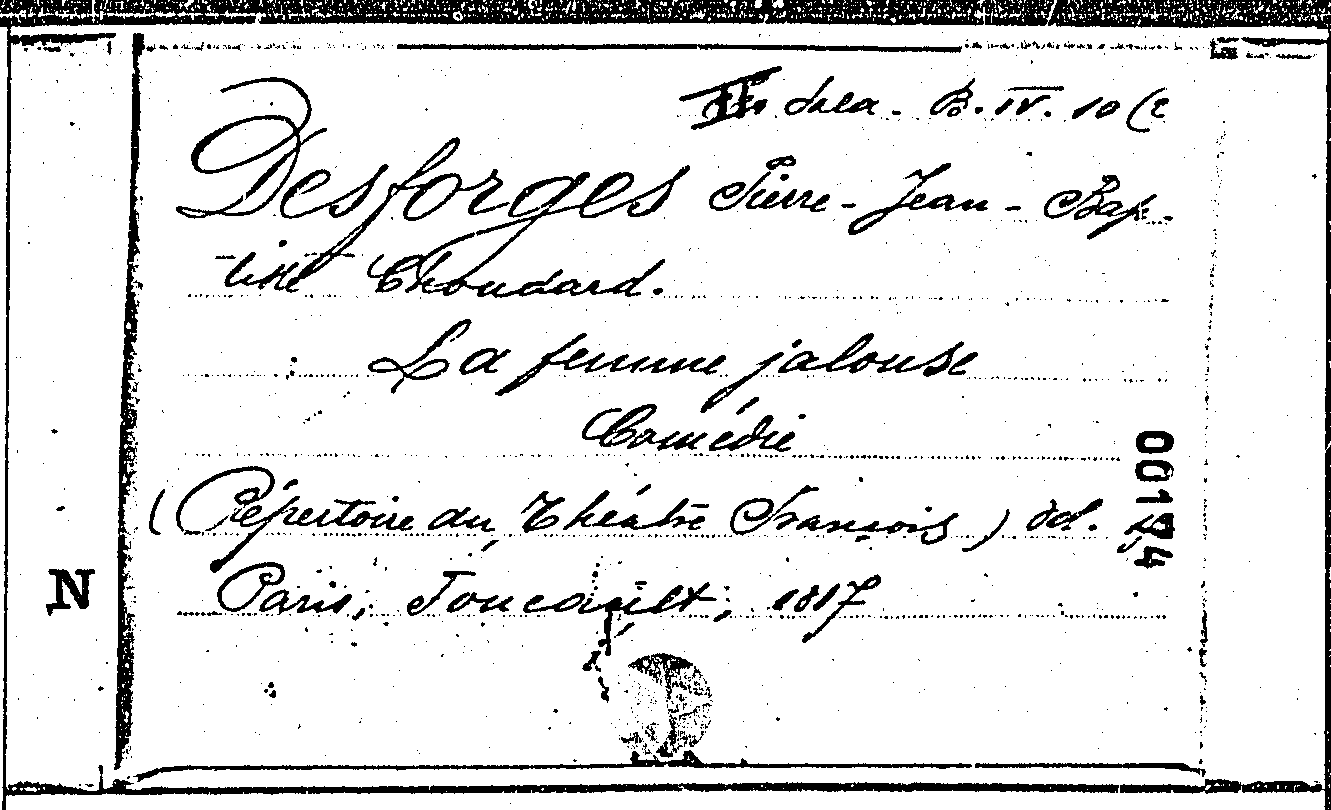 Sala. B. IV. 10 (2
Desforges Pierre-Jean-Bap-
tiste Choudard.
La femme jalouse
Comédie
(Répertoire du Théâtre François) vol.
Paris, Foucault, 1817
N